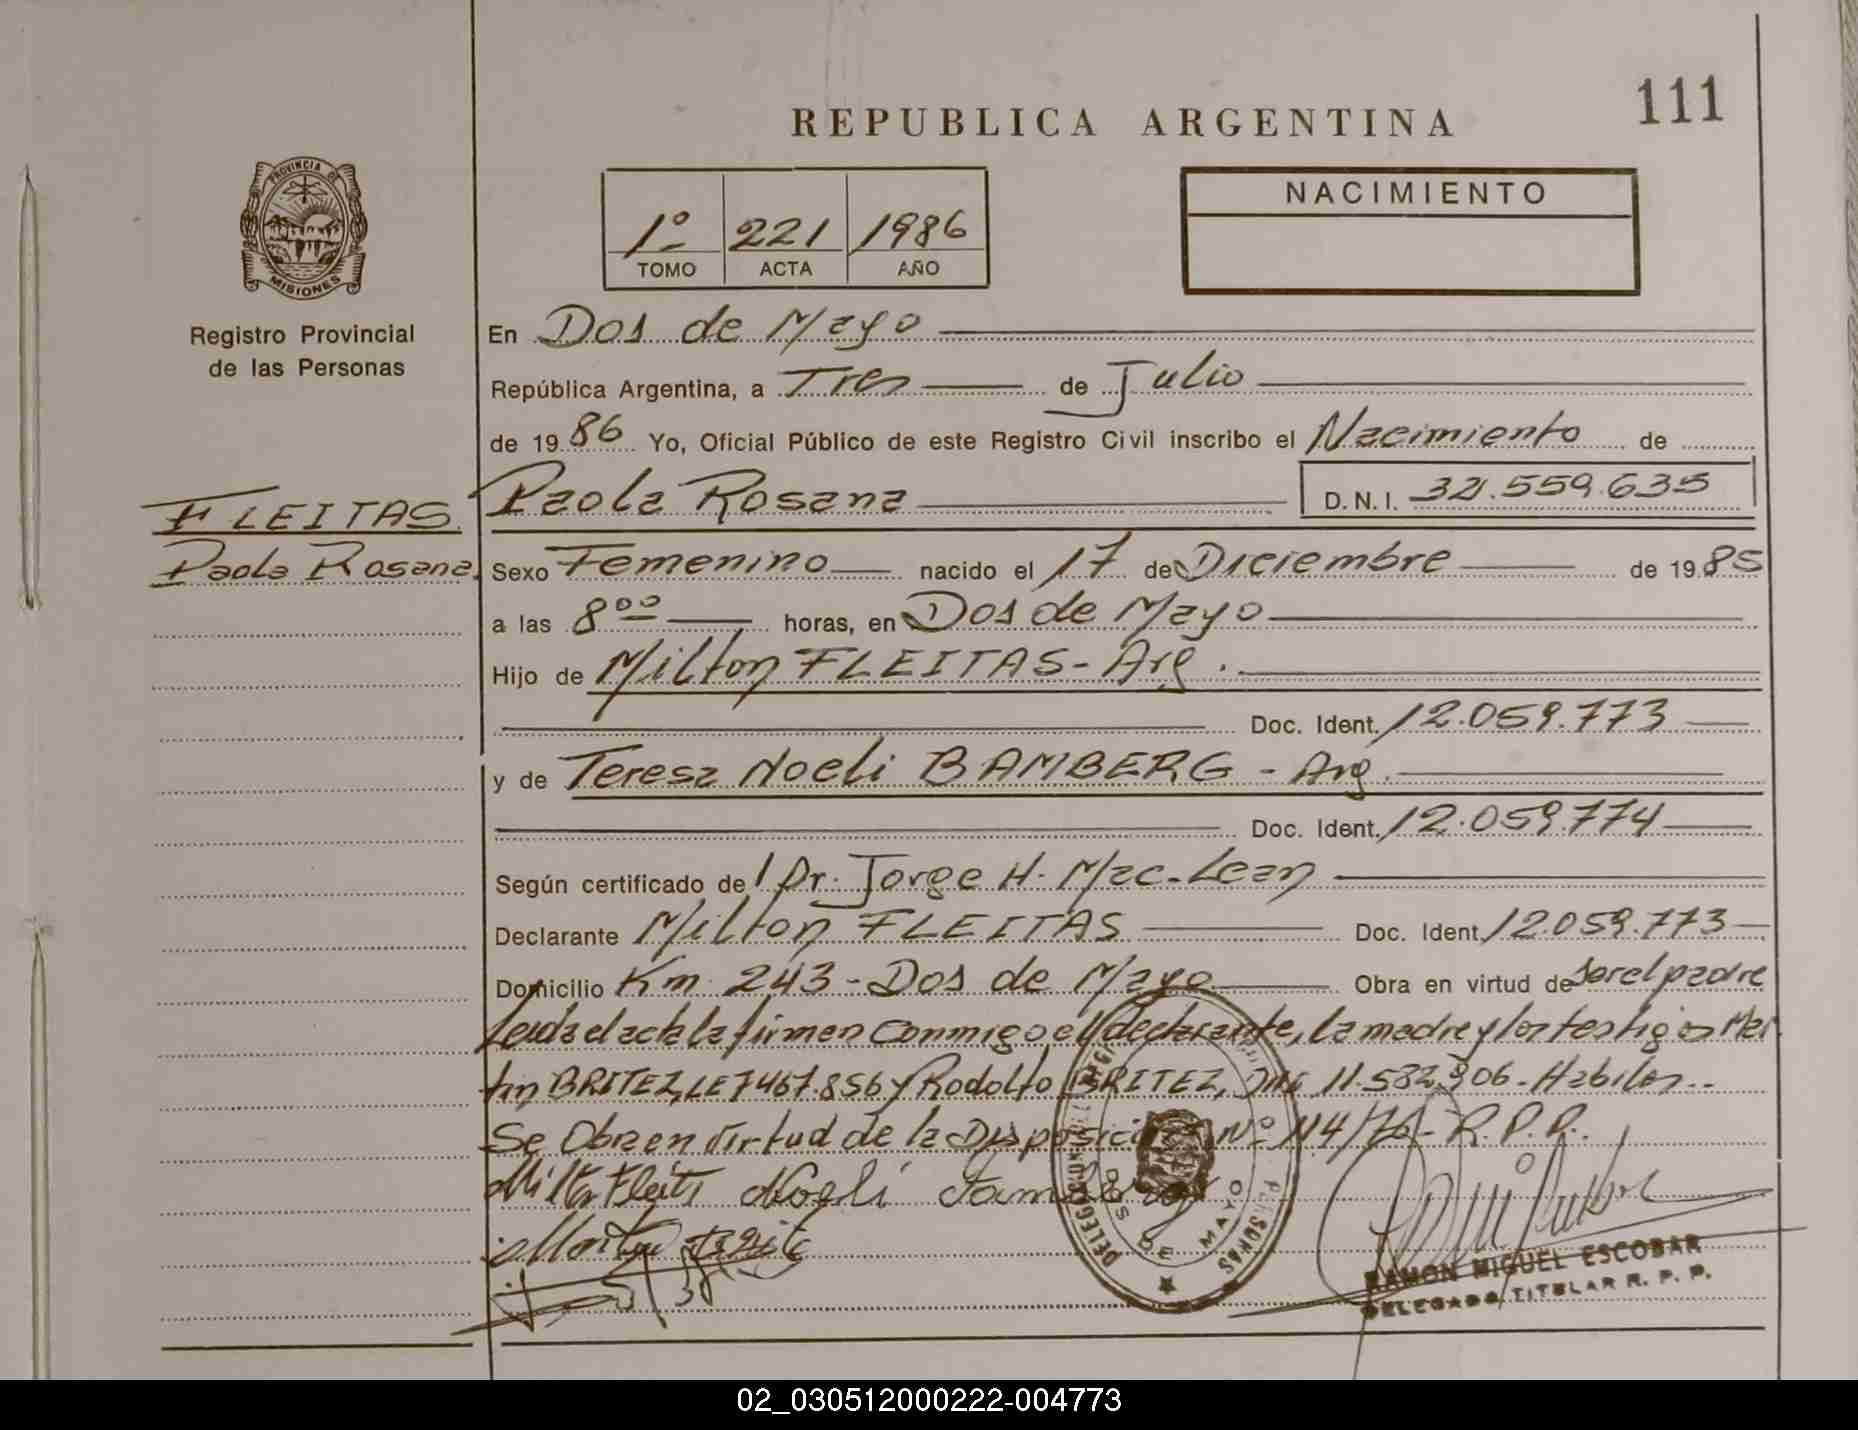 111
REPUBLICA ARGENTINA
PROVINCIA DE
MISIONES
Registro Provincial
de las Personas
1º 221 1986
TOMO ACTA AÑO
NACIMIENTO
En Dos de Mayo
República Argentina, a Tres de Julio
de 1986 Yo, Oficial Público de este Registro Civil inscribo el Nacimiento de
FLEITAS Paola Rosana D.N.I. 32.559.635
Paola Rosana
Sexo Femenino nacido el 17 de Diciembre de 1985
a las 8ºº horas, en Dos de Mayo
Hijo de Milton FLEITAS - Arg.
Doc. Ident. 12.059.773
y de Teresa Noeli BAMBERG - Arg.
Doc. Ident. 12.059.774
Según certificado del Dr. Jorge H. Mac-Lean
Declarante Milton FLEITAS Doc. Ident 12.059.773
Domicilio Km 243 - Dos de Mayo Obra en virtud de ser el padre
Leida el acta la firmen conmigo el declarante, la madre y los testigos Mar
tin BRITEZ, LE 7467.856 y Rodolfo BRITEZ, DNI 11.582.906 - Habiles.--
Se Obra en virtud de la Disposición Nº 114/76 - R.P.P.
DOS DE MAYO
RAMON MIGUEL ESCOBAR
DELEGADO TITULAR R. P. P.
02_030512000222-004773